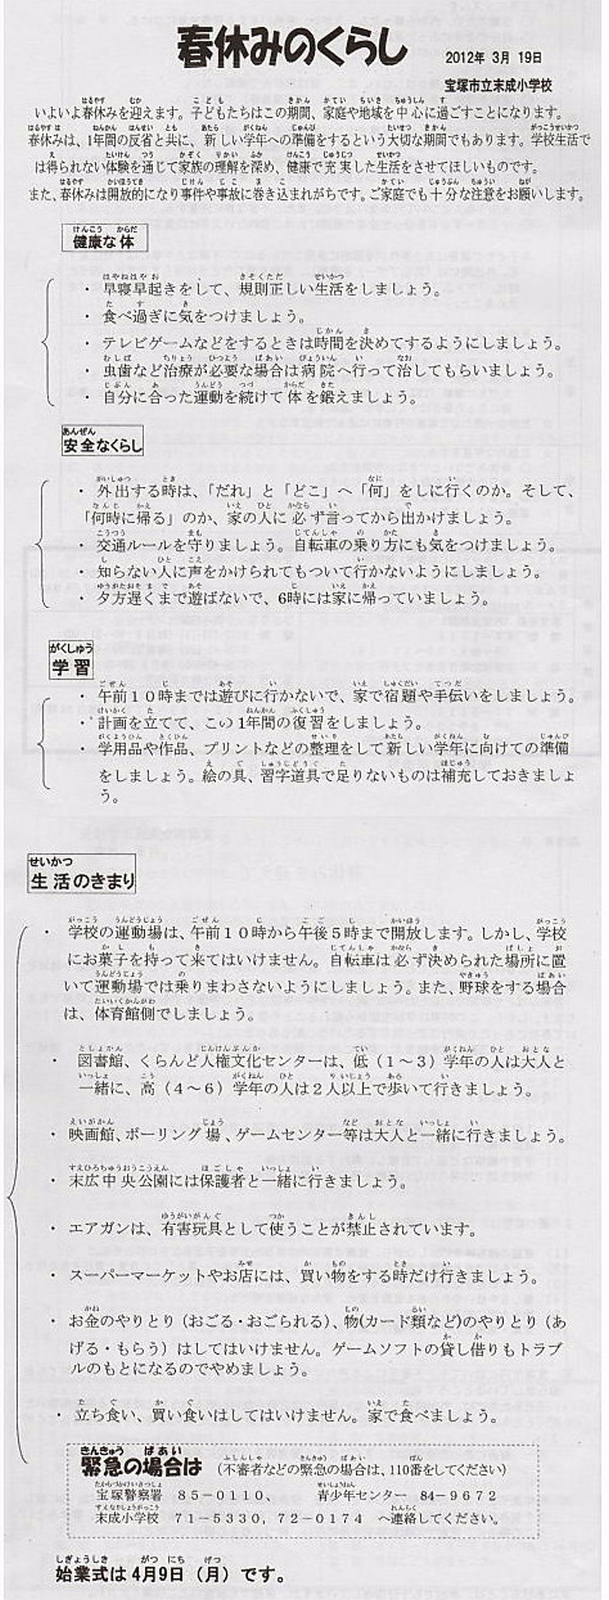 春休みのくらし
2012年 3月 19日
宝塚市立末成小学校
いよいよ春休みを迎えます。子どもたちはこの期間、家庭や地域を中心に過ごすことになります。
春休みは、1年間の反省と共に、新しい学年への準備をするという大切な期間でもあります。学校生活で
は得られない体験を通じて家族の理解を深め、健康で充実した生活をさせてほしいものです。
また、春休みは開放的になり事件や事故に巻き込まれがちです。ご家庭でも十分な注意をお願いします。
健康な体
・ 早寝早起きをして、規則正しい生活をしましょう。
・ 食べ過ぎに気をつけましょう。
・ テレビゲームなどをするときは時間を決めてするようにしましょう。
・ 虫歯など治療が必要な場合は病院へ行って治してもらいましょう。
・ 自分に合った運動を続けて体を鍛えましょう。
安全なくらし
・ 外出する時は、「だれ」と「どこ」へ「何」をしに行くのか。そして、
「何時に帰る」のか、家の人に必ず言ってから出かけましょう。
・ 交通ルールを守りましょう。自転車の乗り方にも気をつけましょう。
・ 知らない人に声をかけられてもついて行かないようにしましょう。
・ 夕方遅くまで遊ばないで、6時には家に帰っていましょう。
学習
・ 午前10時までは遊びに行かないで、家で宿題や手伝いをしましょう。
・ 計画を立てて、この1年間の復習をしましょう。
・ 学用品や作品、プリントなどの整理をして新しい学年に向けての準備
をしましょう。絵の具、習字道具で足りないものは補充しておきましょ
う。
生活のきまり
・ 学校の運動場は、午前10時から午後5時まで開放します。しかし、学校
にお菓子を持って来てはいけません。自転車は必ず決められた場所に置
いて運動場では乗りまわさないようにしましょう。また、野球をする場合
は、体育館側でしましょう。
・ 図書館、くらんど人権文化センターは、低（1～3）学年の人は大人と
一緒に、高（4～6）学年の人は2人以上で歩いて行きましょう。
・ 映画館、ボーリング場、ゲームセンター等は大人と一緒に行きましょう。
・ 末広中央公園には保護者と一緒に行きましょう。
・ エアガンは、有害玩具として使うことが禁止されています。
・ スーパーマーケットやお店には、買い物をする時だけ行きましょう。
・ お金のやりとり（おごる・おごられる）、物(カード類など)のやりとり（あ
げる・もらう）はしてはいけません。ゲームソフトの貸し借りもトラブ
ルのもとになるのでやめましょう。
・ 立ち食い、買い食いはしてはいけません。家で食べましょう。
緊急の場合は （不審者などの緊急の場合は、110番をしてください）
宝塚警察署 85-0110、 青少年センター 84-9672
末成小学校 71-5330，72-0174 へ連絡してください。
始業式は4月9日（月）です。